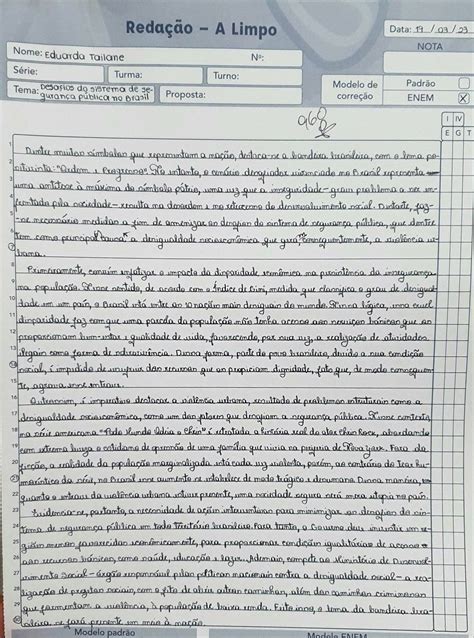 Redação – A Limpo
Data: 17 / 03 / 23
NOTA
Nome: Eduarda Tailane
Nº:
Série:
Turma:
Turno:
Modelo de correção
Padrão
ENEM X
Tema: Desafios do sistema de segurança pública no Brasil
Proposta:
968
I IV
E G T
Dentre muitos símbolos que representam a nação, destaca-se a bandeira brasileira, com o lema po-
sitivista: "Ordem e Progresso". No entanto, o cenário desafiador vivenciado no Brasil representa uma
antítese à máxima do símbolo pátrio, uma vez que a inseguridade - gran problema a ser en-
frentado pela sociedade - resulta na desordem e no retrocesso do desenvolvimento social. Durante, faz-
se necessário medidas a fim de amenizar os desafios do sistema de segurança pública, que dentre
tem como principal causa a desigualdade socioeconômica que gera, consequentemente, a violência ur-
bana.
Primeiramente, convém enfatizar o impacto da disparidade econômica na persistência da insegurança
na população. Nesse sentido, de acordo com o Índice de Gini, medida que classifica o grau de desigual-
dade em um país, o Brasil está entre os 10 nações mais desiguais do mundo. Nessa lógica, essa cruel
disparidade faz com que uma parcela da população não tenha acesso aos serviços básicos que os
proporcionam bem-estar e qualidade de vida, favorecendo, por sua vez, a realização de atividades
ilegais como forma de sobrevivência. Dessa forma, parte do povo brasileiro, devido a sua condição
social, é impedido de usufruir dos recursos que os propiciam dignidade, fato que, de modo consequen-
te, agrava esse entrave.
Outrossim, é imperativo destacar a violência urbana, resultado de problemas estruturais como a
desigualdade socioeconômica, como um dos fatores que desafiam a segurança pública. Nesse contexto,
na série americana "Todo Mundo Odeia o Chris" é retratada a história real do ator Chris Rock, abordando
com extrema leveza o cotidiano de opressão de uma família que vivia na periferia de Nova York. Fora da
ficção, a realidade da população marginalizada está cada vez violenta, porém, ao contrário do teor hu-
morístico da série, no Brasil esse aumento se estabelece de modo trágico e desumano. Dessa maneira, en-
quanto o entrave da violência urbana estiver presente, uma sociedade segura será mera utopia no país.
Evidencia-se, portanto, a necessidade de ações interventivas para minimizar os desafios do sis-
tema de segurança pública em todo território brasileiro. Para tanto, o Governo deve investir em re-
giões menos favorecidas economicamente, para proporcionar condições igualitárias de acesso
aos recursos básicos, como saúde, educação e lazer. Ademais, compete ao Ministério do Desenvol-
vimento Social - órgão responsável pelas políticas nacionais contra a desigualdade social - a rea-
lização de projetos sociais, com o fito de abrir outros caminhos, além dos caminhos criminosos
que fomentam a violência, à população de baixa renda. Feito isso, o lema da bandeira bra-
sileira se fará presente em meio à nação.
Modelo padrão
Modelo ENEM